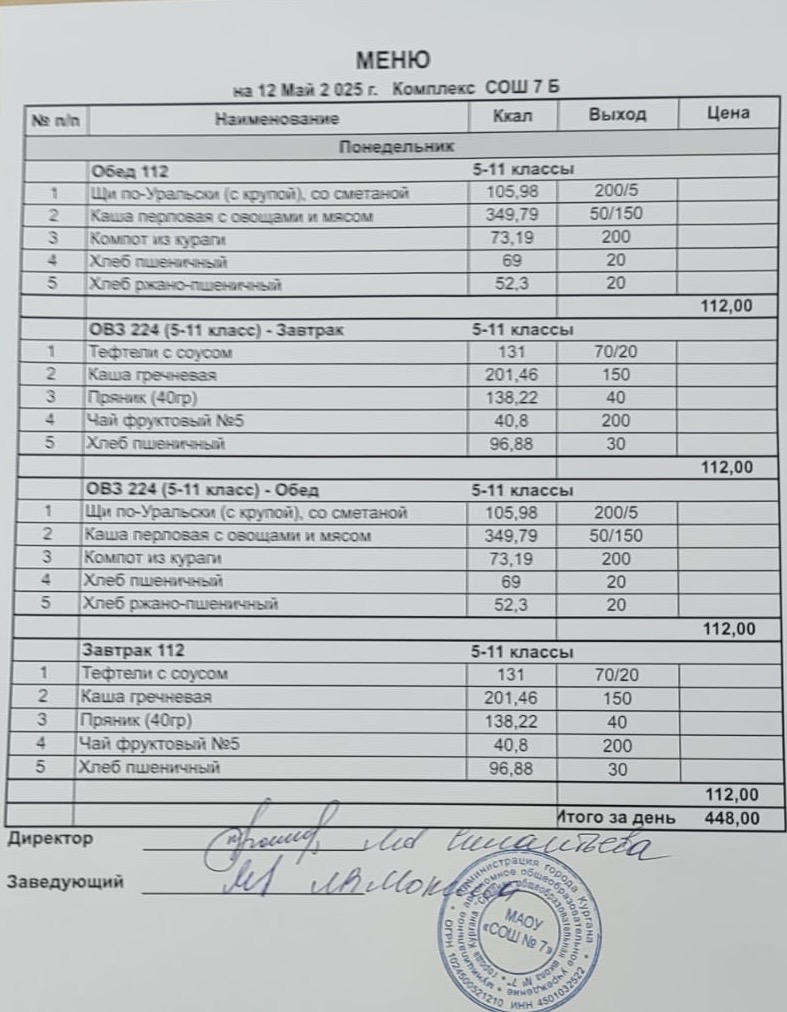 МЕНЮ
на 12 Май 2 025 г. Комплекс СОШ 7 Б
№ п/п Наименование Ккал Выход Цена
Понедельник
Обед 112 5-11 классы
1 Щи по-Уральски (с крупой), со сметаной 105,98 200/5
2 Каша перловая с овощами и мясом 349,79 50/150
3 Компот из кураги 73,19 200
4 Хлеб пшеничный 69 20
5 Хлеб ржано-пшеничный 52,3 20
112,00
ОВЗ 224 (5-11 класс) - Завтрак 5-11 классы
1 Тефтели с соусом 131 70/20
2 Каша гречневая 201,46 150
3 Пряник (40гр) 138,22 40
4 Чай фруктовый №5 40,8 200
5 Хлеб пшеничный 96,88 30
112,00
ОВЗ 224 (5-11 класс) - Обед 5-11 классы
1 Щи по-Уральски (с крупой), со сметаной 105,98 200/5
2 Каша перловая с овощами и мясом 349,79 50/150
3 Компот из кураги 73,19 200
4 Хлеб пшеничный 69 20
5 Хлеб ржано-пшеничный 52,3 20
112,00
Завтрак 112 5-11 классы
1 Тефтели с соусом 131 70/20
2 Каша гречневая 201,46 150
3 Пряник (40гр) 138,22 40
4 Чай фруктовый №5 40,8 200
5 Хлеб пшеничный 96,88 30
112,00
Итого за день 448,00
Директор
Заведующий
Администрация города Кургана
ОГРН 1024500521210 ИНН 4501032522
МАОУ
«СОШ № 7»